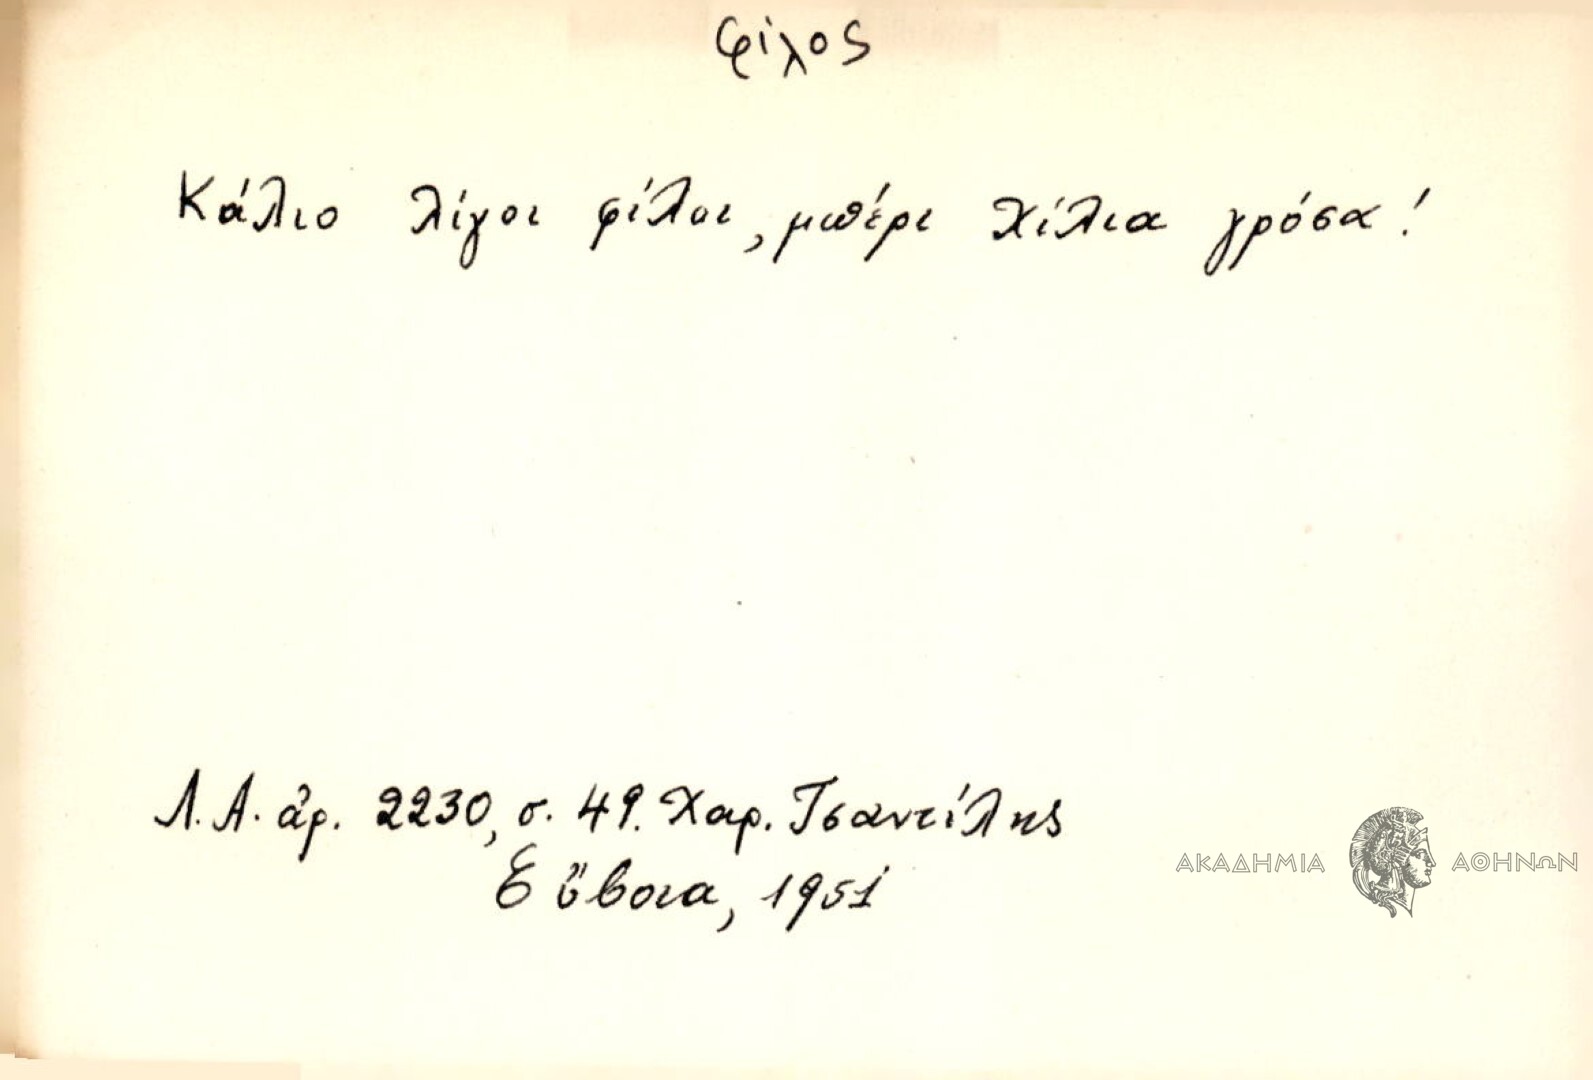 φίλος
Κάλιο λίγοι φίλοι, μπέρι χίλια γρόσα!
Λ.Α. ἀρ. 2230, σ. 49. Χαρ. Τσαντίλης
Εὔβοια, 1951
ΑΚΑΔΗΜΙΑ ΑΘΗΝΩΝ